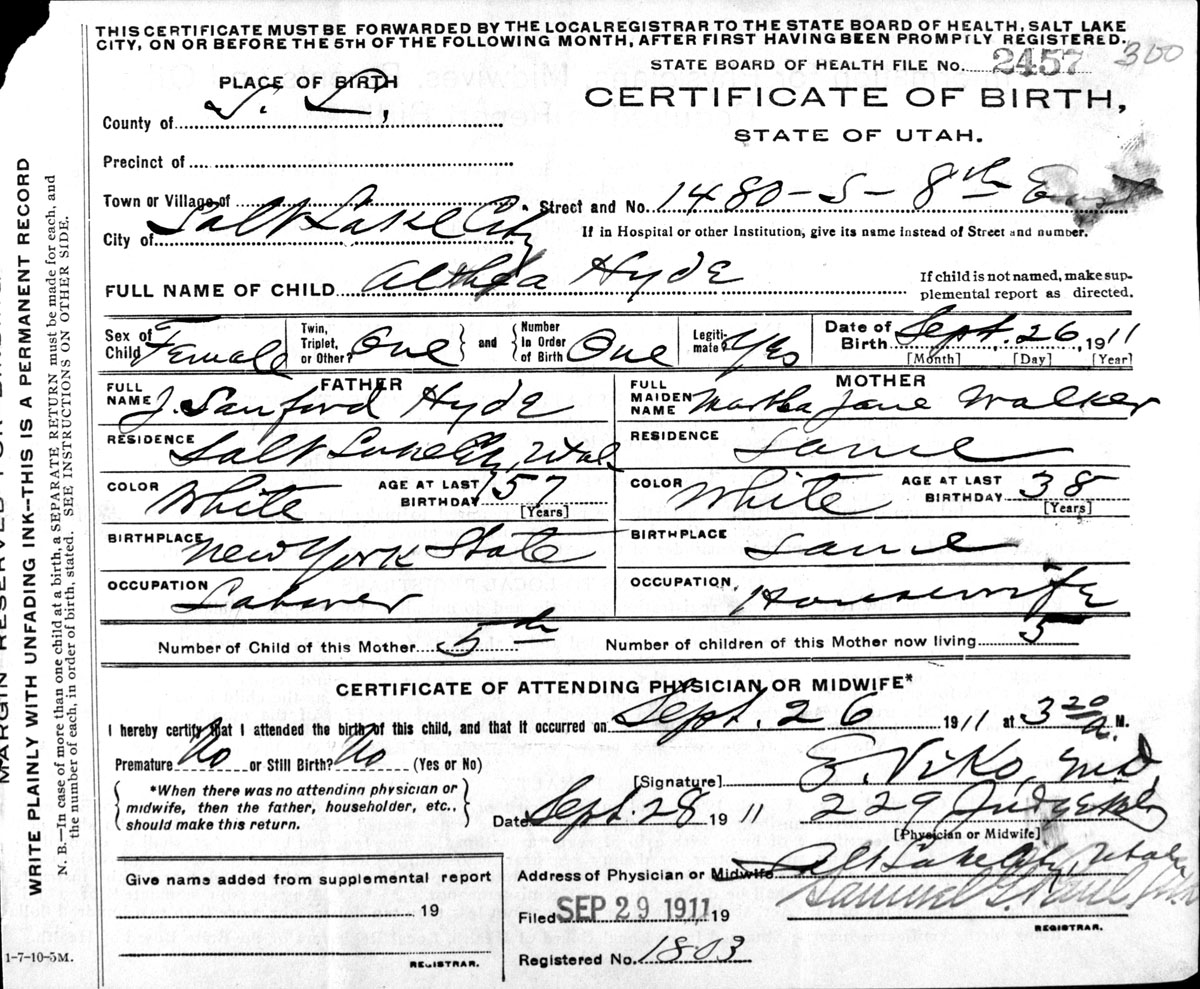 THIS CERTIFICATE MUST BE FORWARDED BY THE LOCAL REGISTRAR TO THE STATE BOARD OF HEALTH, SALT LAKE
CITY, ON OR BEFORE THE 5TH OF THE FOLLOWING MONTH, AFTER FIRST HAVING BEEN PROMPTLY REGISTERED.
STATE BOARD OF HEALTH FILE NO. 2457 300
PLACE OF BIRTH
CERTIFICATE OF BIRTH,
STATE OF UTAH.
County of S. L.,
Precinct of
Town or Village of
Street and No. 1480-S-8th East
City of Salt Lake City
If in Hospital or other Institution, give its name instead of Street and number.
FULL NAME OF CHILD Althea Hyde
If child is not named, make sup-
plemental report as directed.
Sex of Child Female
Twin, Triplet, or Other? One and Number In Order of Birth One
Legiti-mate? Yes
Date of Birth Sept. 26, 1911
[Month] [Day] [Year]
FATHER
FULL NAME J. Sanford Hyde
MOTHER
FULL MAIDEN NAME Martha Jane Walker
RESIDENCE Salt Lake City, Utah
RESIDENCE Same
COLOR White AGE AT LAST BIRTHDAY 57 [Years]
COLOR White AGE AT LAST BIRTHDAY 38 [Years]
BIRTHPLACE New York State
BIRTHPLACE Same
OCCUPATION Laborer
OCCUPATION Housewife
Number of Child of this Mother 5th
Number of children of this Mother now living 5
CERTIFICATE OF ATTENDING PHYSICIAN OR MIDWIFE*
I hereby certify that I attended the birth of this child, and that it occurred on Sept. 26 1911 at 3 20 a. M.
Premature No or Still Birth? No (Yes or No)
*When there was no attending physician or
midwife, then the father, householder, etc.,
should make this return.
[Signature] E. Viko, M.D.
Date Sept. 28 1911
229 Judge
[Physician or Midwife]
Give name added from supplemental report
19
REGISTRAR.
Address of Physician or Midwife Salt Lake City, Utah
Filed SEP 29 1911 19
Samuel G. Paul
REGISTRAR.
Registered No. 1803
1-7-10-5M.
MARGIN RESERVED FOR BINDING
WRITE PLAINLY WITH UNFADING INK—THIS IS A PERMANENT RECORD
N. B.—In case of more than one child at a birth, a SEPARATE RETURN must be made for each, and
the number of each, in order of birth, stated. SEE INSTRUCTIONS ON OTHER SIDE.